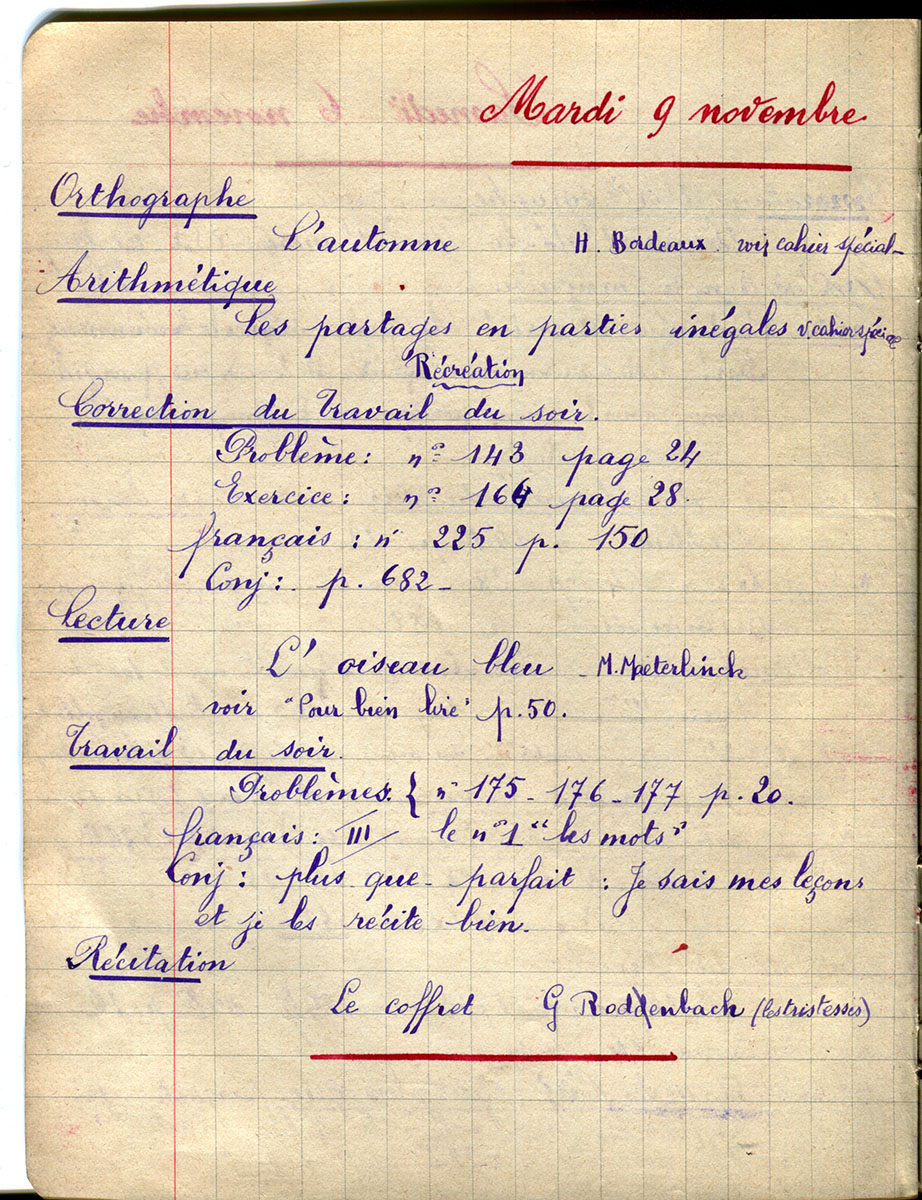 Mardi 9 novembre
Orthographe
L'automne H. Bordeaux. voir cahier spécial_
Arithmétique
Les partages en parties inégales v. cahier spécial
Récréation
Correction du Travail du soir.
Problème : n° 143 page 24
Exercice : n° 164 page 28.
français : n° 225 p. 150
Conj : p. 682_
Lecture
L'oiseau bleu _ M. Maeterlinck
voir "Pour bien lire" p. 50.
Travail du soir.
Problèmes. { n° 175 _ 176 _ 177 p. 20.
français : III le n° 1 "les mots"
Conj : plus-que-parfait : Je sais mes leçons
et je les récite bien.
Récitation
Le coffret G Roddenbach (les tristesses)